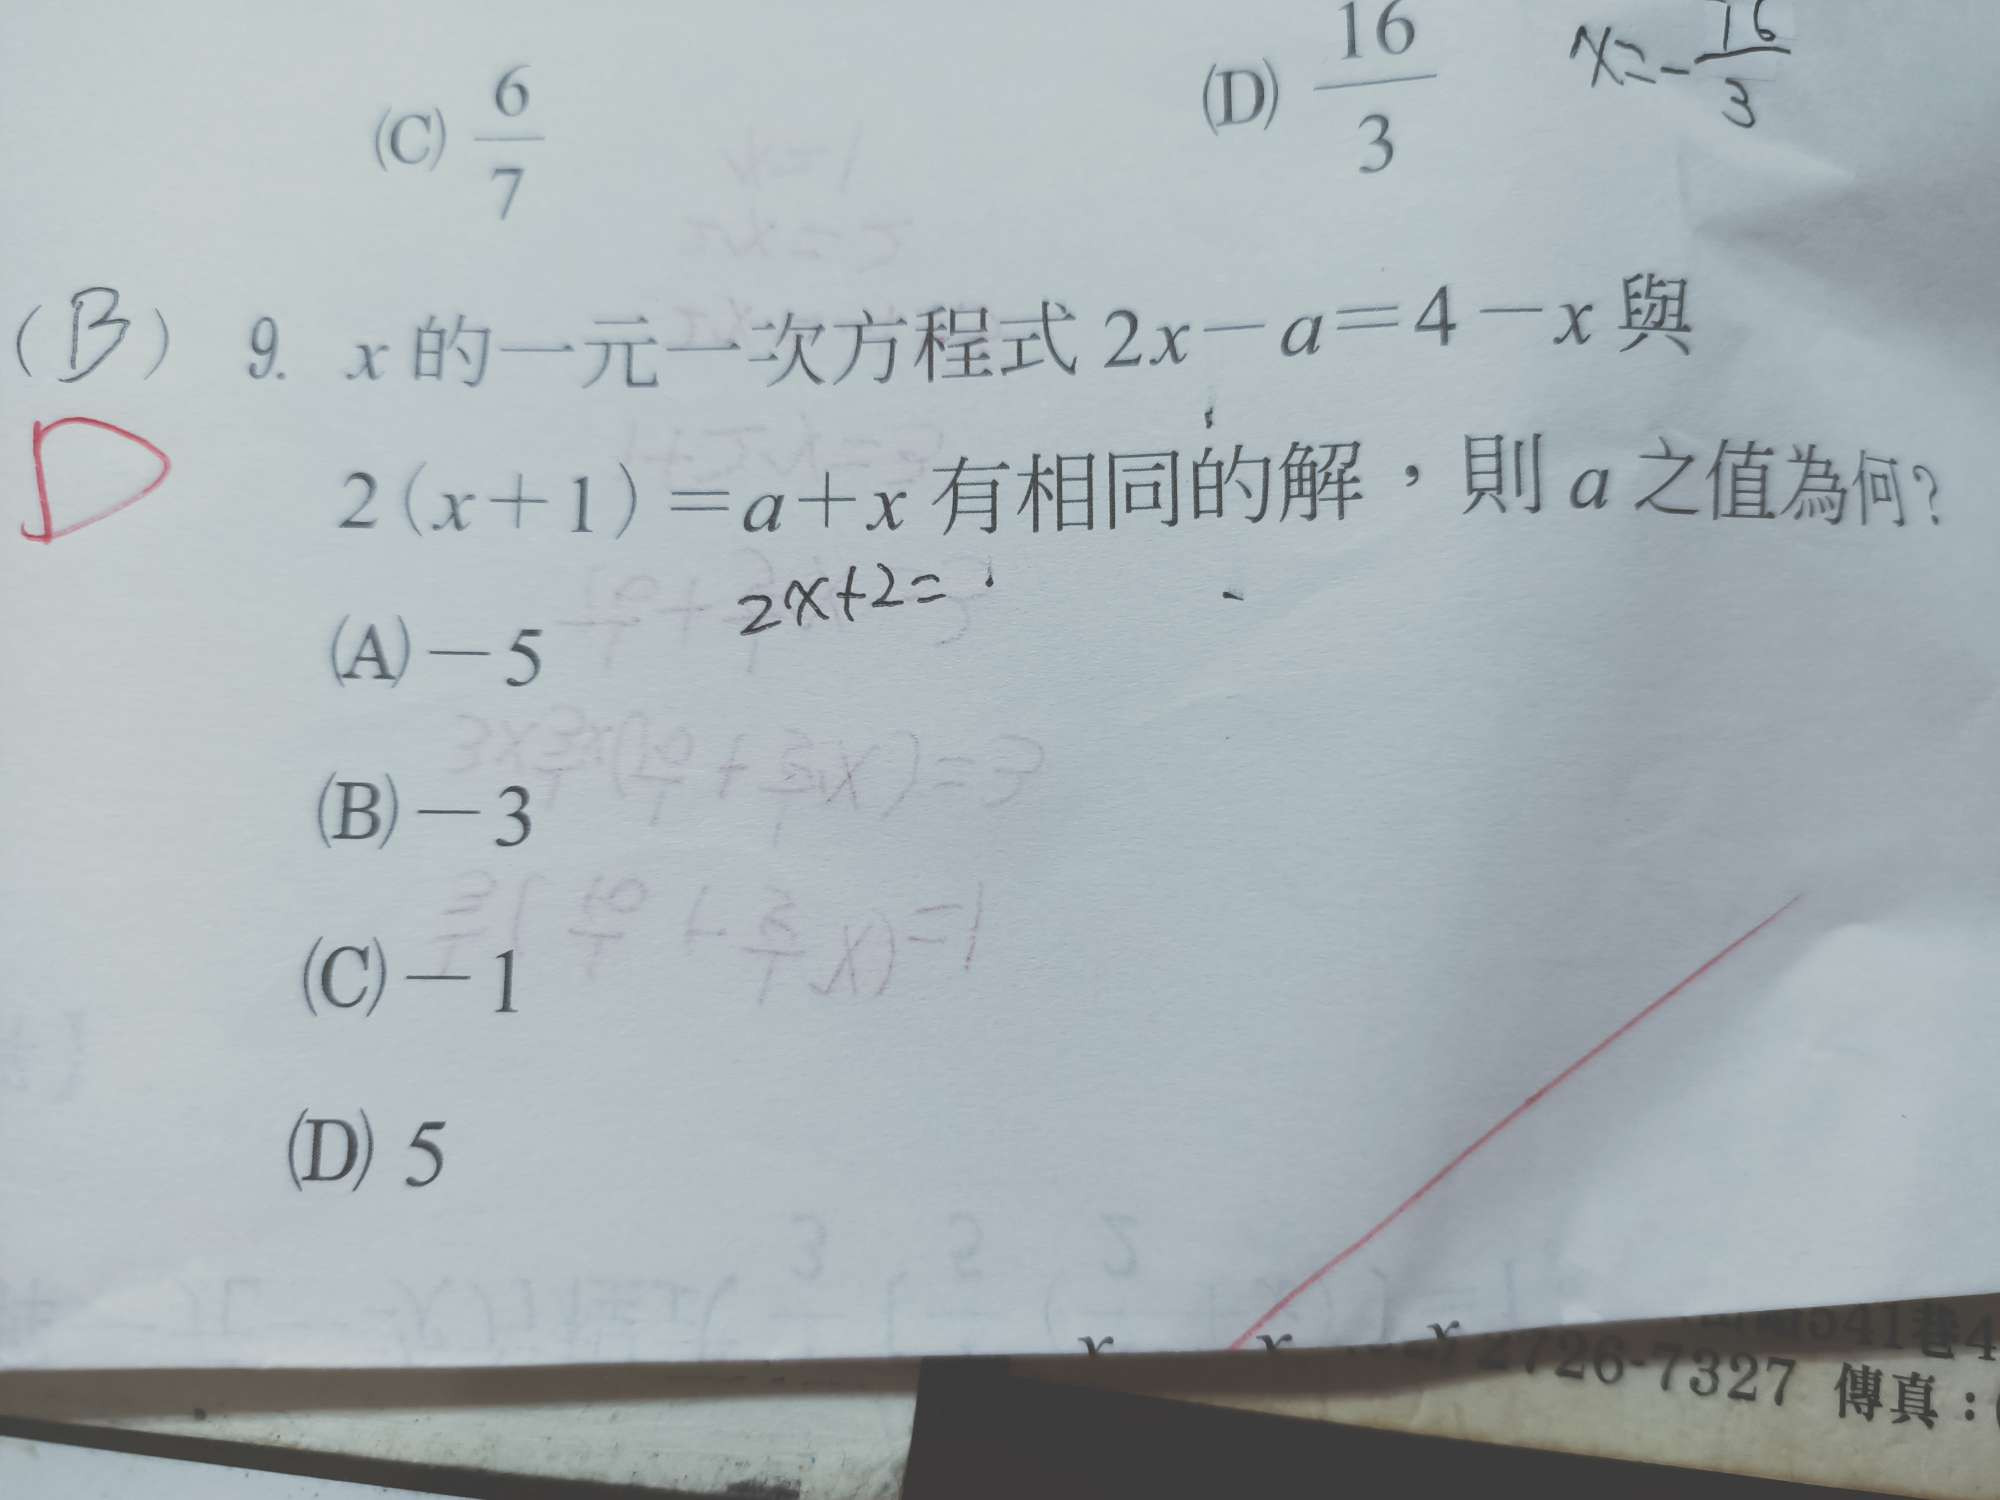 (C) 6/7 (D) 16/3 x=-16/3
(B) 9. x 的一元一次方程式 2x－a＝4－x 與
D 2(x＋1)＝a＋x 有相同的解，則 a 之值為何?
2x+2=
(A)－5
(B)－3
(C)－1
(D) 5
541巷4
2726-7327 傳真：(